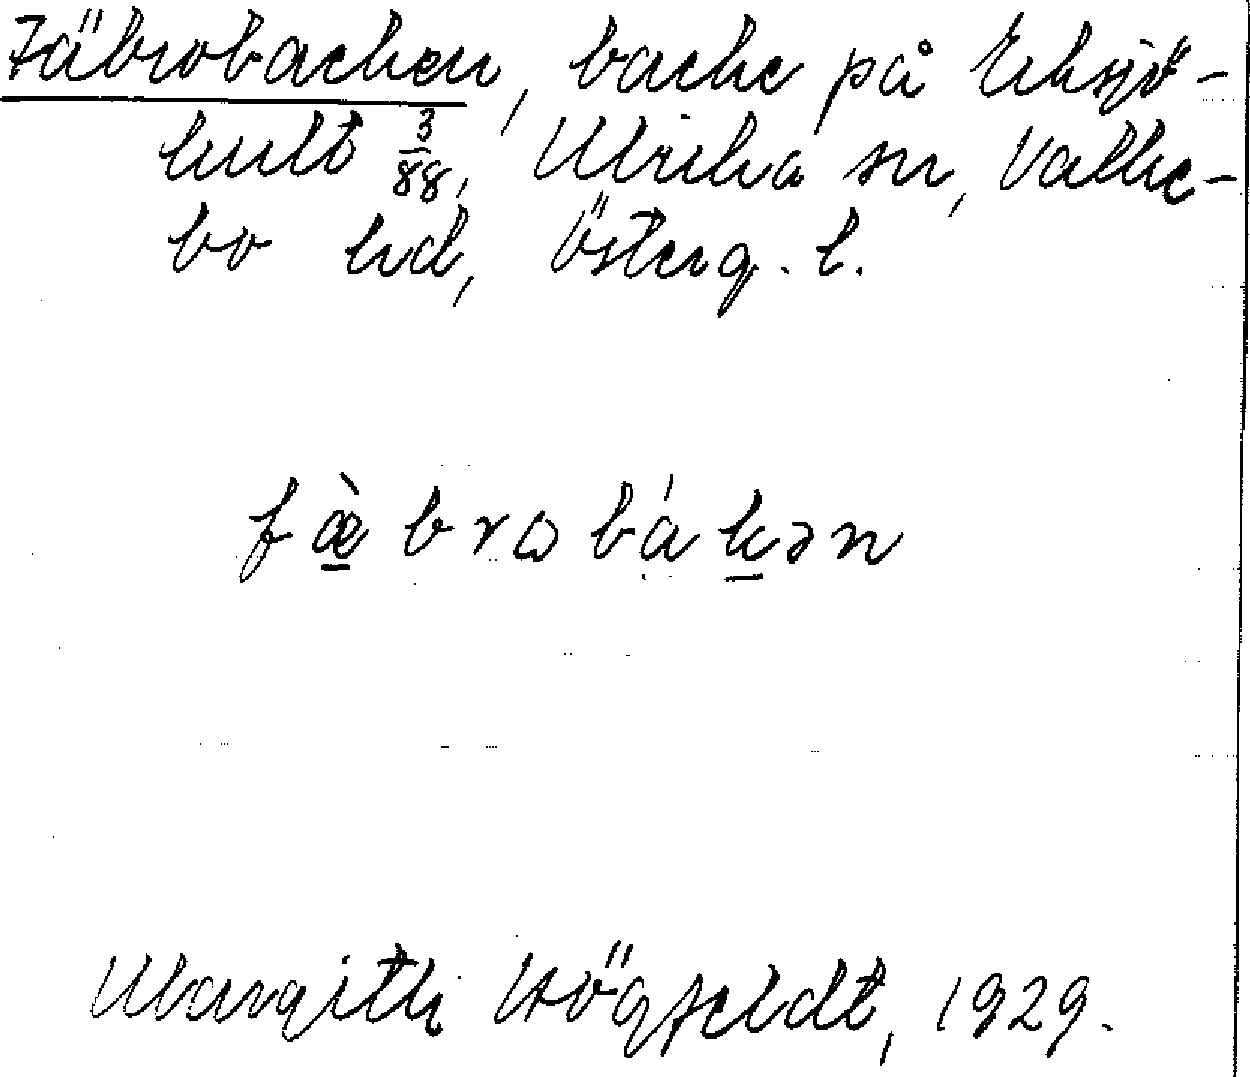 Fäbrobacken, backe på Eksjö-
hult 3/88, Ulrika sn, Valke-
bo hd, Österg. l.
fæ̀brobákən
Margith Högfeldt, 1929.